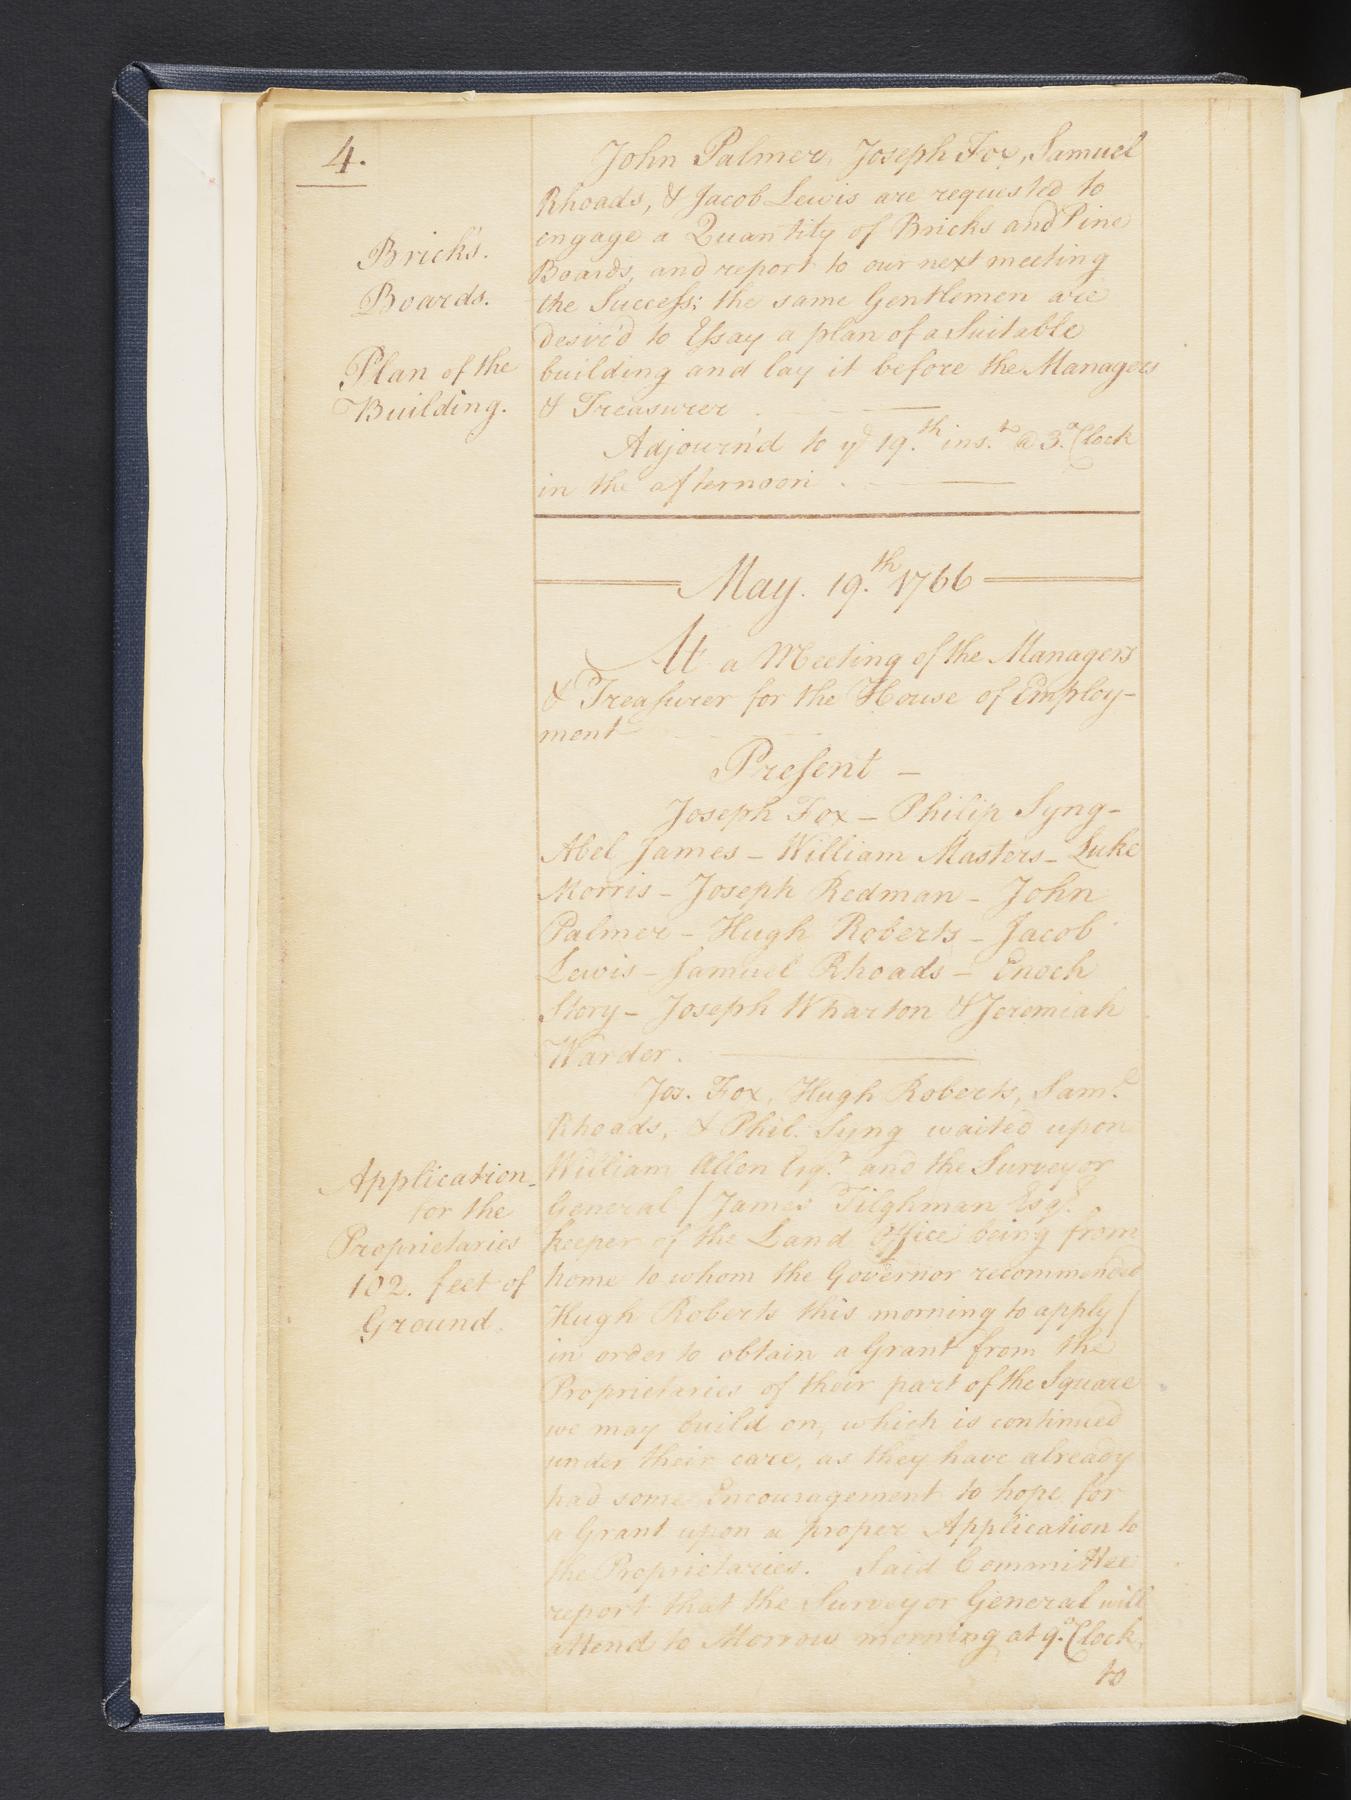 4.
John Palmer, Joseph Fox, Samuel
Rhoads, & Jacob Lewis are requested to
engage a Quantity of Bricks and Pine
Boards, and report to our next meeting
the Success; the same Gentlemen are
desir'd to Essay a plan of a Suitable
building and lay it before the Managers
& Treasurer.
Adjourn'd to ye 19.th ins.t @ 3.oClock
in the afternoon.
Bricks.
Boards.
Plan of the
Building.
May. 19.th 1766
At a Meeting of the Managers
& Treasurer for the House of Employ-
ment
Present -
Joseph Fox - Philip Syng -
Abel James - William Masters - Luke
Morris - Joseph Redman - John
Palmer - Hugh Roberts - Jacob
Lewis - Samuel Rhoads - Enoch
Story - Joseph Wharton & Jeremiah
Warder.
Jos. Fox, Hugh Roberts, Sam.l
Rhoads, & Phil. Syng waited upon
William Allen Esq.r and the Surveyor
General / James Tilghman Esq.r
keeper of the Land Office being from
home to whom the Governor recommended
Hugh Roberts this morning to apply /
in order to obtain a Grant from the
Proprietaries of their part of the Square
we may build on, which is continued
under their care, as they have already
had some Encouragement to hope for
a Grant upon a proper Application to
the Proprietaries. Said Committee
report that the Surveyor General will
attend to Morrow morning at 9.oClock,
to
Application
for the
Proprietaries
102. feet of
Ground.